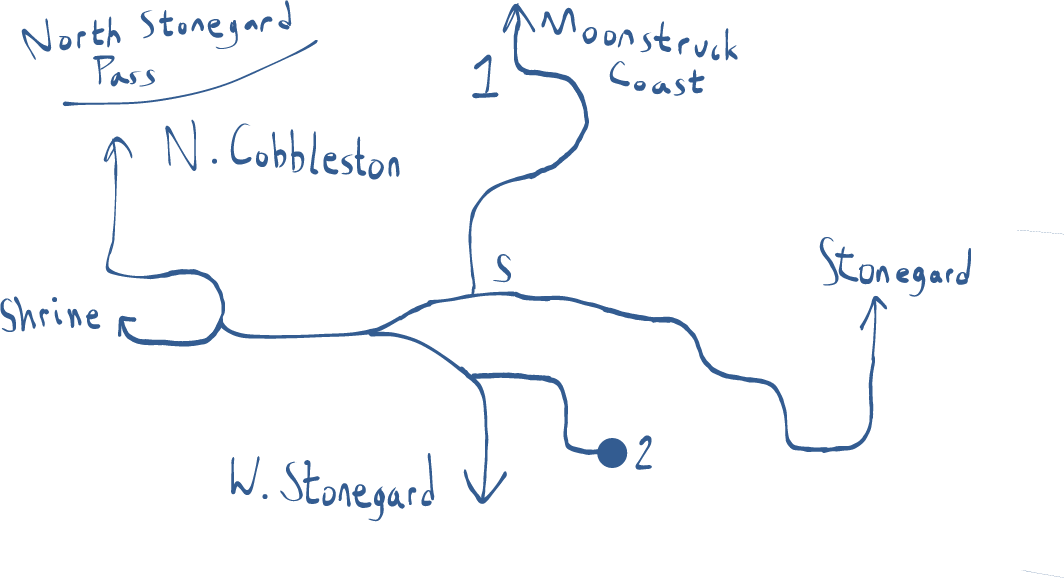 North Stonegard
Pass
Moonstruck
Coast
1
N. Cobbleston
S
Stonegard
Shrine
2
W. Stonegard